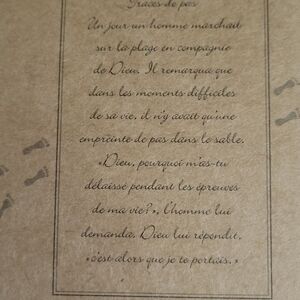 Traces de pas
Un jour un homme marchait
sur la plage en compagnie
de Dieu. Il remarqua que
dans les moments difficiles
de sa vie, il n'y avait qu'une
empreinte de pas dans le sable.
«Dieu, pourquoi m'as-tu
délaissé pendant les épreuves
de ma vie?», l'homme lui
demanda. Dieu lui répondit,
«c'est alors que je te portais.»